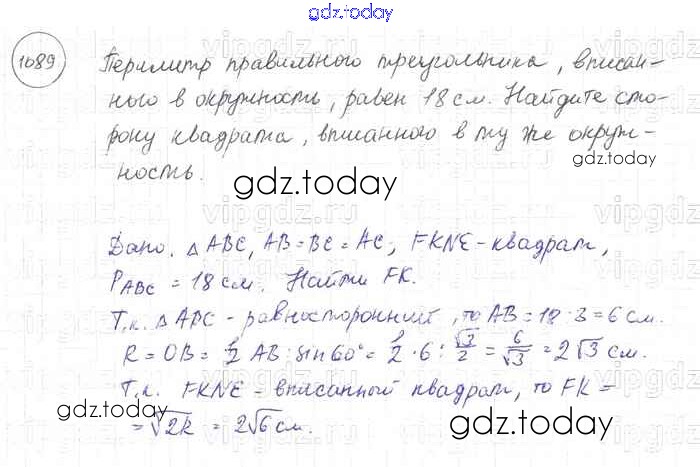 gdz.today
1089 Периметр правильного треугольника, вписан-
ного в окружность, равен 18 см. Найдите сто-
рону квадрата, вписанного в ту же окруж-
ность.
gdz.today
gdz.today
Дано. △ABC, AB=BC=AC; FKNE-квадрат,
P_ABC = 18 см. Найти FK.
Т.к. △ABC - равносторонний, то AB=18:3=6 см.
R = OB = 1/2 AB : sin 60° = 1/2 · 6 : √3/2 = 6/√3 = 2√3 см.
Т.к. FKNE - вписанный квадрат, то FK =
= √2R = 2√6 см.
gdz.today
gdz.today